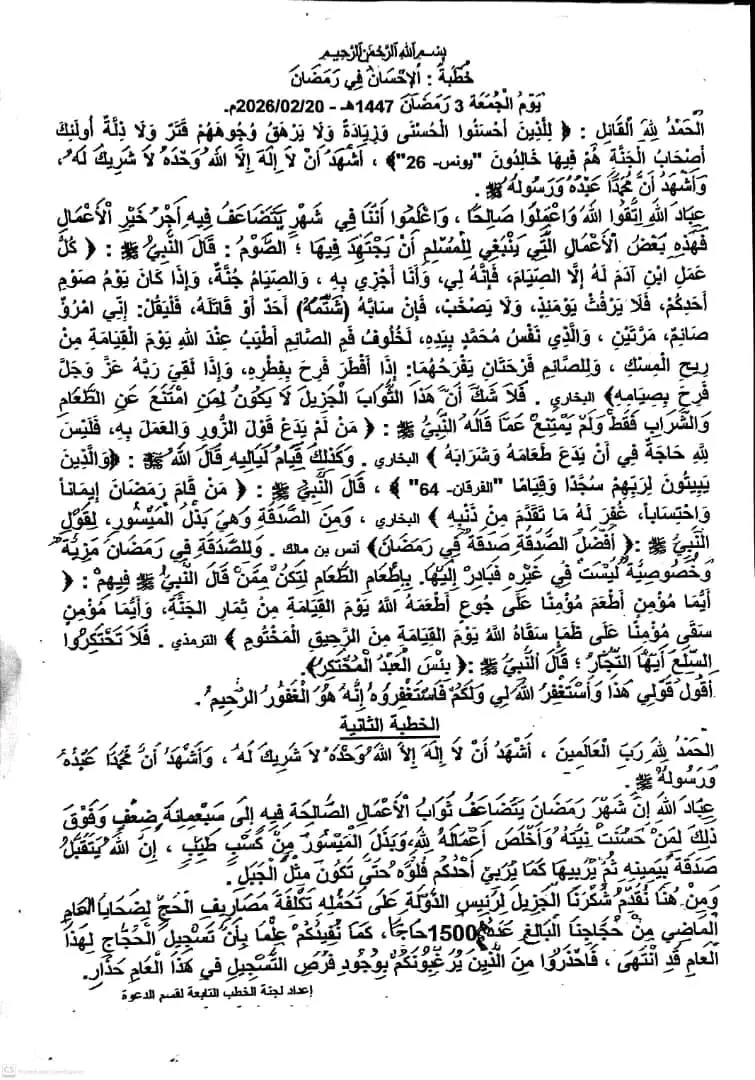 بِسْمِ اللهِ الرَّحْمَنِ الرَّحِيمِ
خُطْبَةُ : الإِحْسَانُ فِي رَمَضَانَ
يَوْمُ الْجُمُعَةِ 3 رَمَضَانَ 1447هـ - 2026/02/20م.
الْحَمْدُ لِلَّهِ الْقَائِلِ : ﴿ لِلَّذِينَ أَحْسَنُوا الْحُسْنَى وَزِيَادَةٌ وَلَا يَرْهَقُ وُجُوهَهُمْ قَتَرٌ وَلَا ذِلَّةٌ أُولَئِكَ
أَصْحَابُ الْجَنَّةِ هُمْ فِيهَا خَالِدُونَ "يونس- 26"﴾ ، أَشْهَدُ أَنْ لَا إِلَهَ إِلَّا اللهُ وَحْدَهُ لَا شَرِيكَ لَهُ ،
وَأَشْهَدُ أَنَّ مُحَمَّدًا عَبْدُهُ وَرَسُولُهُ ﷺ .
عِبَادَ اللهِ اِتَّقُوا اللهَ وَاعْمَلُوا صَالِحًا ، وَاعْلَمُوا أَنَّنَا فِي شَهْرٍ يَتَضَاعَفُ فِيهِ أَجْرُ خَيْرِ الْأَعْمَالِ
فَهَذِهِ بَعْضُ الْأَعْمَالِ الَّتِي يَنْبَغِي لِلْمُسْلِمِ أَنْ يَجْتَهِدَ فِيهَا ؛ الصَّوْمُ : قَالَ النَّبِيُّ ﷺ : ﴿ كُلُّ
عَمَلِ ابْنِ آدَمَ لَهُ إِلَّا الصِّيَامَ، فَإِنَّهُ لِي، وَأَنَا أَجْزِي بِهِ ، وَالصِّيَامُ جُنَّةٌ، وَإِذَا كَانَ يَوْمُ صَوْمِ
أَحَدِكُمْ، فَلَا يَرْفُثْ يَوْمَئِذٍ، وَلَا يَصْخَبْ، فَإِنْ سَابَّهُ (شَتَمَهُ) أَحَدٌ أَوْ قَاتَلَهُ، فَلْيَقُلْ: إِنِّي امْرُؤٌ
صَائِمٌ، مَرَّتَيْنِ ، وَالَّذِي نَفْسُ مُحَمَّدٍ بِيَدِهِ، لَخُلُوفُ فَمِ الصَّائِمِ أَطْيَبُ عِنْدَ اللهِ يَوْمَ الْقِيَامَةِ مِنْ
رِيحِ الْمِسْكِ ، وَلِلصَّائِمِ فَرْحَتَانِ يَفْرَحُهُمَا: إِذَا أَفْطَرَ فَرِحَ بِفِطْرِهِ، وَإِذَا لَقِيَ رَبَّهُ عَزَّ وَجَلَّ
فَرِحَ بِصِيَامِهِ﴾ البخاري . فَلَا شَكَّ أَنَّ هَذَا الثَّوَابَ الْجَزِيلَ لَا يَكُونُ لِمَنِ امْتَنَعَ عَنِ الطَّعَامِ
وَالشَّرَابِ فَقَطْ وَلَمْ يَمْتَنِعْ عَمَّا قَالَهُ النَّبِيُّ ﷺ : ﴿ مَنْ لَمْ يَدَعْ قَوْلَ الزُّورِ وَالعَمَلَ بِهِ، فَلَيْسَ
لِلَّهِ حَاجَةٌ فِي أَنْ يَدَعَ طَعَامَهُ وَشَرَابَهُ ﴾ البخاري . وَكَذَلِكَ قِيَامُ لَيَالِيهِ قَالَ اللهُ ﷻ : ﴿وَالَّذِينَ
يَبِيتُونَ لِرَبِّهِمْ سُجَّدًا وَقِيَامًا "الفرقان- 64" ﴾ ، قَالَ النَّبِيُّ ﷺ : ﴿ مَنْ قَامَ رَمَضَانَ إِيمَاناً
وَاحْتِسَاباً، غُفِرَ لَهُ مَا تَقَدَّمَ مِنْ ذَنْبِهِ ﴾ البخاري ، وَمِنَ الصَّدَقَةِ وَهِيَ بَذْلُ الْمَيْسُورِ، لِقَوْلِ
النَّبِيِّ ﷺ :﴿ أَفْضَلُ الصَّدَقَةِ صَدَقَةٌ فِي رَمَضَانَ﴾ أنس بن مالك . وَلِلصَّدَقَةِ فِي رَمَضَانَ مَزِيَّةٌ
وَخُصُوصِيَّةٌ لَيْسَتْ فِي غَيْرِهِ فَبَادِرْ إِلَيْهَا. بِإِطْعَامِ الطَّعَامِ لِتَكُنْ مِمَّنْ قَالَ النَّبِيُّ ﷺ فِيهِمْ : ﴿
أَيُّمَا مُؤْمِنٍ أَطْعَمَ مُؤْمِنًا عَلَى جُوعٍ أَطْعَمَهُ اللهُ يَوْمَ القِيَامَةِ مِنْ ثِمَارِ الجَنَّةِ، وَأَيُّمَا مُؤْمِنٍ
سَقَى مُؤْمِنًا عَلَى ظَمَإٍ سَقَاهُ اللهُ يَوْمَ القِيَامَةِ مِنَ الرَّحِيقِ الْمَخْتُومِ ﴾ الترمذي . فَلَا تَحْتَكِرُوا
السِّلَعَ أَيُّهَا التُّجَّارُ ؛ قَالَ النَّبِيُّ ﷺ :﴿ بِئْسَ الْعَبْدُ الْمُحْتَكِرُ﴾.
أَقُولُ قَوْلِي هَذَا وَأَسْتَغْفِرُ اللهَ لِي وَلَكُمْ فَاسْتَغْفِرُوهُ إِنَّهُ هُوَ الْغَفُورُ الرَّحِيمُ .
الخطبة الثانية
الْحَمْدُ لِلَّهِ رَبِّ الْعَالَمِينَ ، أَشْهَدُ أَنْ لَا إِلَهَ إِلَّا اللهُ وَحْدَهُ لَا شَرِيكَ لَهُ ، وَأَشْهَدُ أَنَّ مُحَمَّدًا عَبْدُهُ
وَرَسُولُهُ ﷺ .
عِبَادَ اللهِ إِنَّ شَهْرَ رَمَضَانَ يَتَضَاعَفُ ثَوَابُ الْأَعْمَالِ الصَّالِحَةِ فِيهِ إِلَى سَبْعِمِائَةِ ضِعْفٍ وَفَوْقَ
ذَلِكَ لِمَنْ حَسُنَتْ نِيَّتُهُ وَأَخْلَصَ أَعْمَالَهُ لِلَّهِ وَبَذَلَ الْمَيْسُورَ مِنْ كَسْبٍ طَيِّبٍ ، إِنَّ اللهَ يَتَقَبَّلُ
صَدَقَةً بِيَمِينِهِ ثُمَّ يُرَبِّيهَا كَمَا يُرَبِّي أَحَدُكُمْ فَلُوَّهُ حَتَّى تَكُونَ مِثْلَ الْجَبَلِ .
وَمِنْ هُنَا نُقَدِّمُ شُكْرَنَا الْجَزِيلَ لِرَئِيسِ الدَّوْلَةِ عَلَى تَحَمُّلِهِ تَكْلِفَةَ مَصَارِيفِ الْحَجِّ لِضَحَايَا الْعَامِ
الْمَاضِي مِنْ حُجَّاجِنَا الْبَالِغِ عَدَدُهُمْ 1500 حَاجًّا، كَمَا نُفِيدُكُمْ عِلْمًا بِأَنَّ تَسْجِيلَ الْحُجَّاجِ لِهَذَا
الْعَامِ قَدِ انْتَهَى ، فَاحْذَرُوا مِنَ الَّذِينَ يُرَغِّبُونَكُمْ بِوُجُودِ فُرَصِ التَّسْجِيلِ فِي هَذَا الْعَامِ حَذَارِ.
إعداد لجنة الخطب التابعة لقسم الدعوة
CS